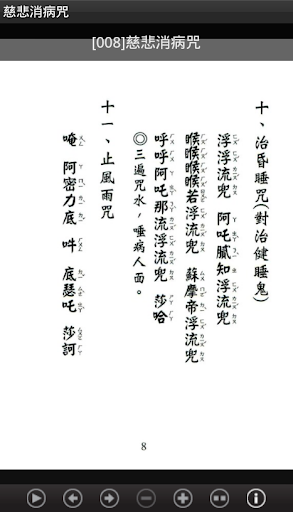 慈悲消病咒
[008]慈悲消病咒
十、治昏睡咒(對治健睡鬼)
浮浮流兜 阿吒膩知浮流兜
睺睺睺睺若浮流兜 蘇摩帝浮流兜
呼呼阿吒那流浮流兜 莎哈
◎三遍咒水，唾病人面。
十一、止風雨咒
唵 阿密力底 吽 底瑟吒 莎訶
8